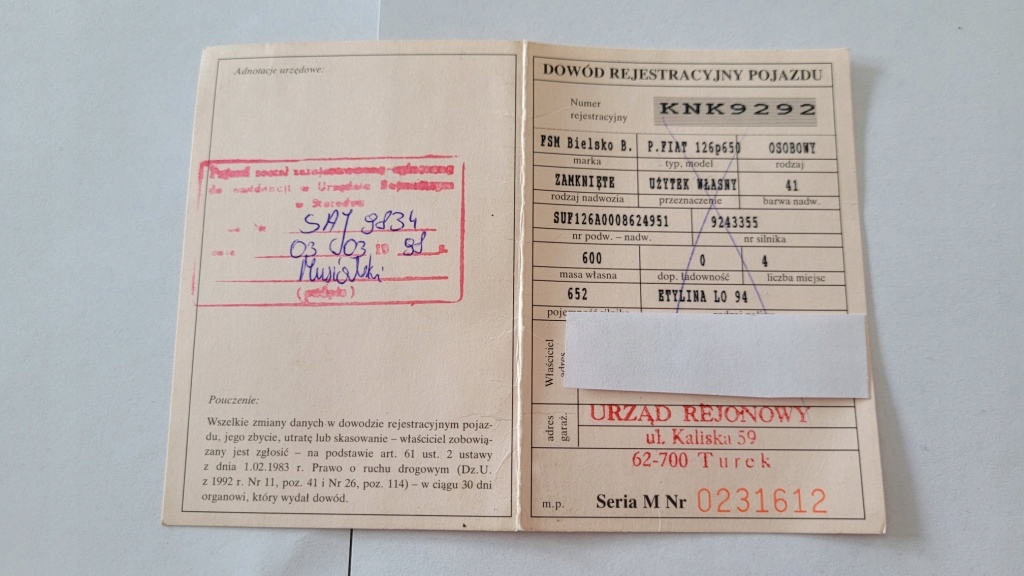 Adnotacje urzędowe:
Pojazd został zarejestrowany
do ewidencji w Urzędzie Rejonowym
w
SAY 9834
03 03 19 98 r.
Musialski
(podpis)
Pouczenie:
Wszelkie zmiany danych w dowodzie rejestracyjnym pojaz-
du, jego zbycie, utratę lub skasowanie – właściciel zobowią-
zany jest zgłosić – na podstawie art. 61 ust. 2 ustawy
z dnia 1.02.1983 r. Prawo o ruchu drogowym (Dz.U.
z 1992 r. Nr 11, poz. 41 i Nr 26, poz. 114) – w ciągu 30 dni
organowi, który wydał dowód.
DOWÓD REJESTRACYJNY POJAZDU
Numer
rejestracyjny
KNK9292
FSM Bielsko B. P.FIAT 126p650 OSOBOWY
marka typ, model rodzaj
ZAMKNIĘTE UŻYTEK WŁASNY 41
rodzaj nadwozia przeznaczenie barwa nadw.
SUF126A0008624951 9243355
nr podw. – nadw. nr silnika
600 0 4
masa własna dop. ładowność liczba miejsc
652 ETYLINA LO 94
Właściciel
adres
adres
garaż.
URZĄD REJONOWY
ul. Kaliska 59
62-700 Turek
m.p. Seria M Nr 0231612